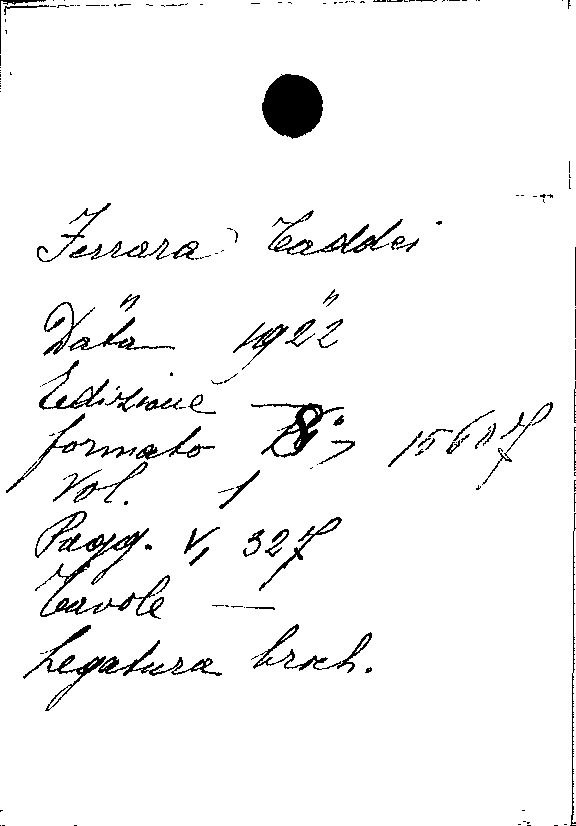 Ferrara Taddei
" "
Data 1922
Edizione —
formato 8°
Vol. 1
Pagg. V, 327
Tavole —
Legatura broch.